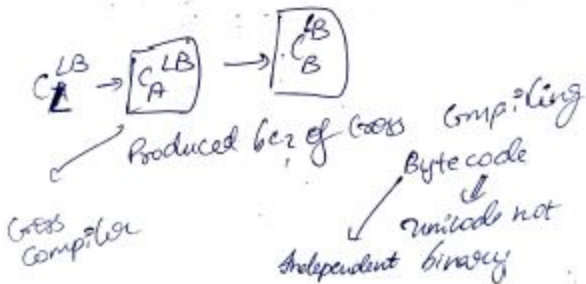 C_L^{LB} → C_A^{LB} → C_B^{LB}
Produced bcz of Cross Compiling
Cross Compiler
Bytecode
Independent
unicode not binary